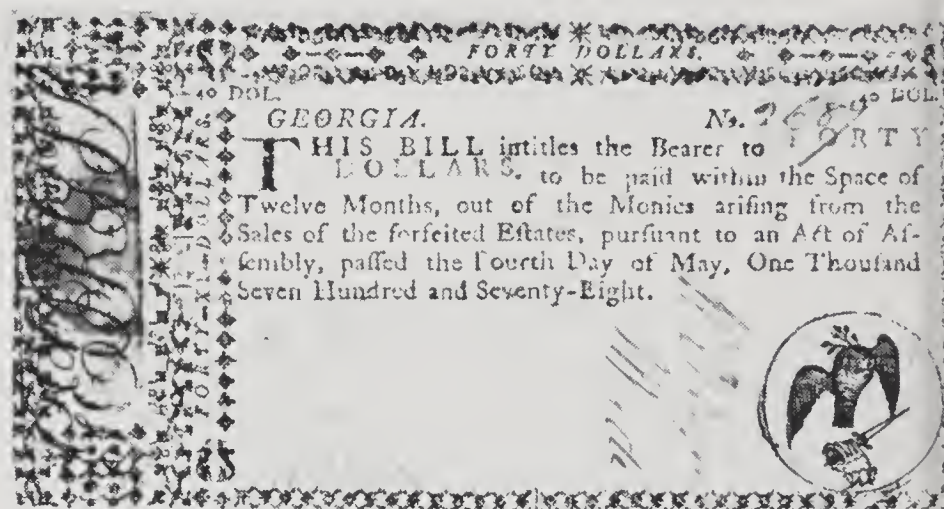 FORTY DOLLARS.
40 DOL. 40 DOL.
GEORGIA. No.
THIS BILL intitles the Bearer to FORTY
DOLLARS, to be paid within the Space of
Twelve Months, out of the Monies ariſing from the
Sales of the forfeited Eſtates, purſuant to an Act of Aſ-
ſembly, paſſed the Fourth Day of May, One Thouſand
Seven Hundred and Seventy-Eight.
FORTY DOLLARS.